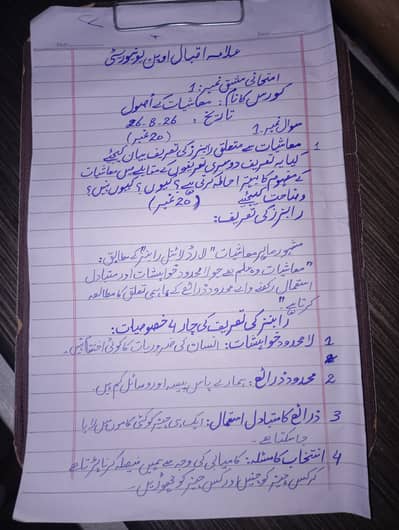 علامہ اقبال اوپن یونیورسٹی
امتحانی مشق نمبر: 1
کورس کا نام: معاشیات کے اصول
تاریخ: 26.8.26
سوال نمبر 1 (20 نمبر)
1 معاشیات سے متعلق رابنز کی تعریف بیان کیجئے
کیا یہ تعریف دوسری تعریفوں کے مقابلے میں معاشیات
کے مفہوم کا بہتر احاطہ کرتی ہے؟ کیوں؟ کیوں نہیں؟
وضاحت کیجئے (20 نمبر)
رابنز کی تعریف:
مشہور ماہر معاشیات "لارڈ لائنل رابنز" کے مطابق:
"معاشیات وہ علم ہے جو لامحدود خواہشات اور متبادل
استعمال رکھنے والے محدود ذرائع کے باہمی تعلق کا مطالعہ
کرتا ہے۔"
رابنز کی تعریف کی چار 4 خصوصیات:
1 لامحدود خواہشات: انسان کی ضروریات کا کوئی اختتام نہیں۔
2 محدود ذرائع: ہمارے پاس پیسہ اور وسائل کم ہیں۔
3 ذرائع کا متبادل استعمال: ایک ہی چیز کو کئی کاموں میں لایا
جا سکتا ہے۔
4 انتخاب کا مسئلہ: کامیابی کی وجہ سے ہمیں فیصلہ کرنا پڑتا ہے
کہ کس چیز کو چنیں اور کس چیز کو چھوڑیں۔